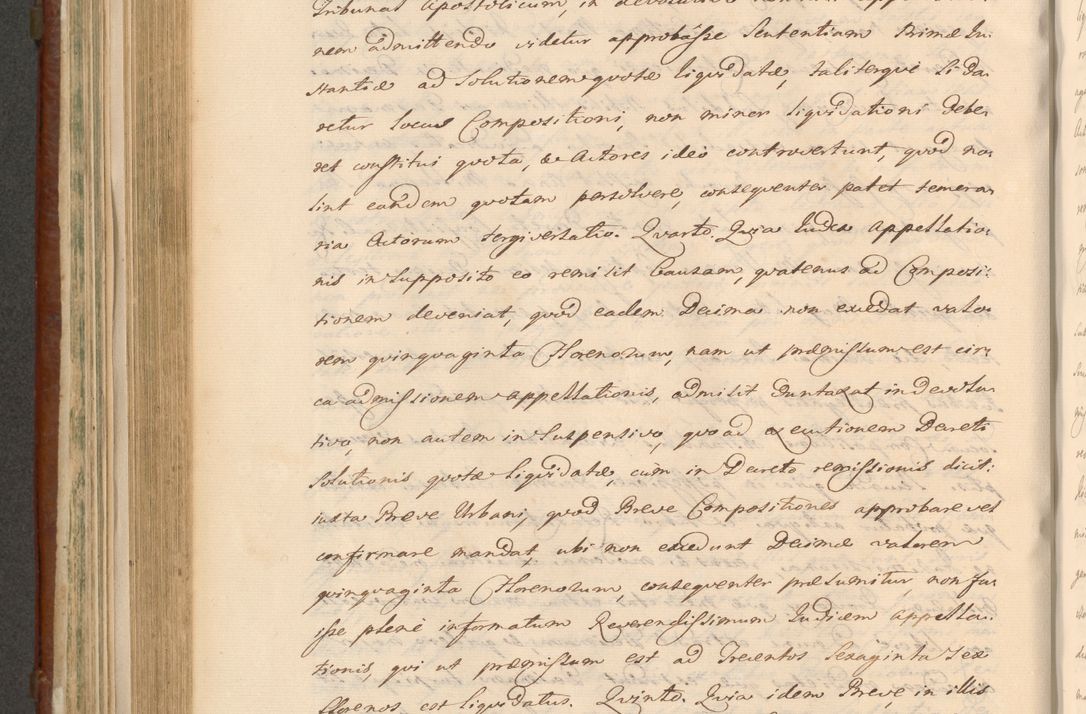 Tribunal Apostolicum, in devoluti
nem admittendo videtur approbasse Sententiam Primæ In-
stantiæ ad Solutionem quotæ liquidatæ, taliterque si da-
retur locus Compositioni, non minor liquidationi debe-
ret constitui quota, & Actores ideo controvertunt, quod no-
lint eandem quotam persolvere, consequenter patet temera-
ria Actorum tergiversatio. Quarto. Quia Iudex Appellatio-
nis in Supposito eo remisit Causam, quatenus ad Composi-
tionem deveniat, quod eadem Decima non excedat valo-
rem quinquaginta Florenorum, nam ut præmissum est cir-
ca admissionem Appellationis, admisit duntaxat in devolu-
tivo, non autem in Suspensivo, quoad executionem Decreti
Solutionis quotæ liquidatæ, cum in Decreto remissionis dicit:
iuxta Breve Urbani, quod Breve Compositiones approbare vel
confirmare mandat, ubi non excedunt Decimæ valorem
quinquaginta Florenorum, consequenter præsumitur, non fu-
isse plenè informatum Reverendissimum Iudicem Appella-
tionis, qui ut præmissum est ad Trecentos Sexaginta Sex
Florenos est liquidatus. Quinto. Quia idem Breve, in illis